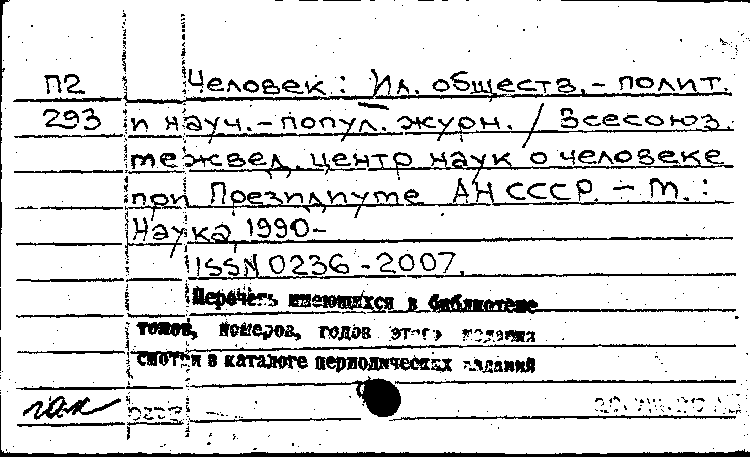 П2 Человек: Ил. обществ.-полит.
293 и науч.-попул. журн. / Всесоюз.
межвед. центр наук о человеке
при Президиуме АН СССР. – М.:
Наука, 1990-
ISSN 0236-2007.
Перечень имеющихся в библиотеке
томов, номеров, годов этого издания
смотри в каталоге периодических изданий
гак